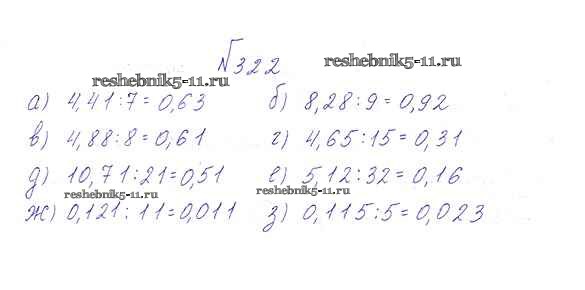 №322
reshebnik5-11.ru
reshebnik5-11.ru
а) 4,41:7=0,63 б) 8,28:9=0,92
в) 4,88:8=0,61 г) 4,65:15=0,31
д) 10,71:21=0,51 е) 5,12:32=0,16
reshebnik5-11.ru reshebnik5-11.ru
ж) 0,121:11=0,011 з) 0,115:5=0,023